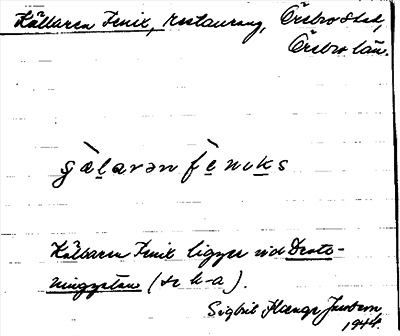 Källaren Fenix, restaurang, Örebro stad,
Örebro län.
gä̀larən fè̱nɩḵs
Källaren Fenix ligger vid Drott-
ninggatan (se k-a).
Sigbrit
1944.